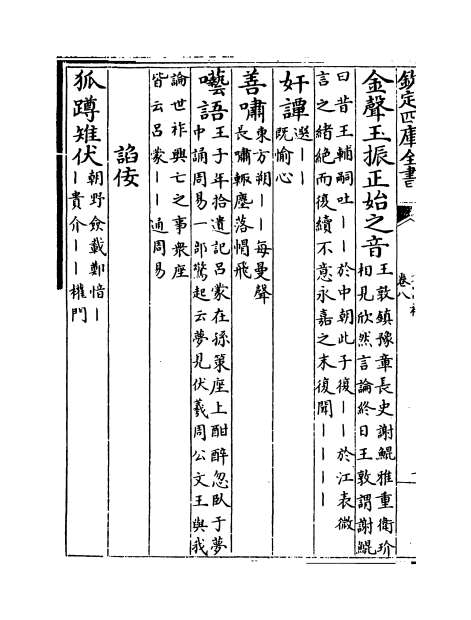 欽定四庫全書
卷八
金聲玉振正始之音王敦鎮豫章長史謝鯤雅重衛玠
相見欣然言論終日王敦謂謝鯤
曰昔王輔嗣吐丨丨於中朝此子復丨丨於江表微
言之緒絶而復續不意永嘉之末復聞丨丨丨丨
奸譚選丨丨
既愉心
善嘯東方朔丨丨每曼聲
長嘯輒塵落㡌飛
囈語王子年拾遺記呂蒙在孫策座上酣醉忽臥于夢
中誦周易一部驚起云夢見伏羲周公文王與我
論世祚興亡之事衆座
皆云呂蒙丨丨通周易
諂佞
狐蹲雉伏朝野僉載鄭愔丨
丨貴介丨丨權門